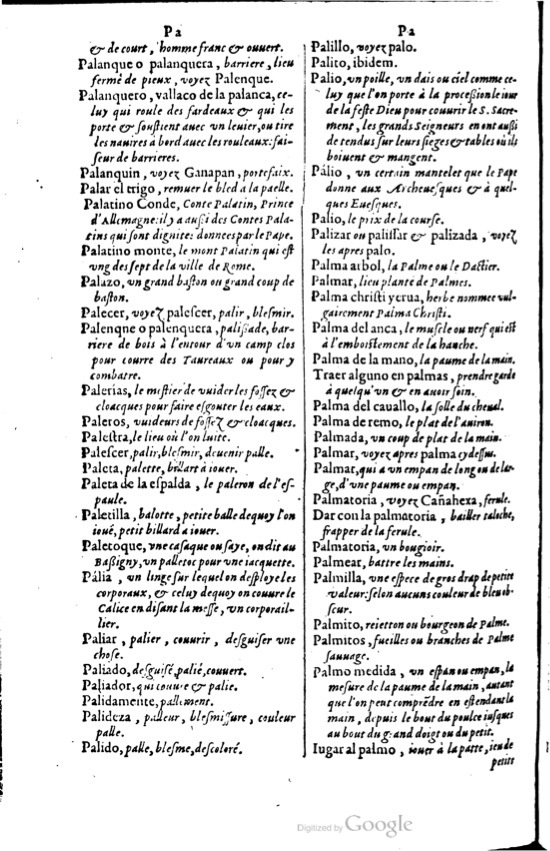 Pa
& de court, homme franc & ouuert.
Palanque o palanquera, barriere, lieu
fermé de pieux, voyez Palenque.
Palanquero, vallaco de la palanca, ce-
luy qui roule des fardeaux & qui les
porte & soustient auec vn leuier, ou tire
les nauires à bord auec les rouleaux: fai-
seur de barrieres.
Palanquin, voyez Ganapan, portefaix.
Palar el trigo, remuer le bled à la paelle.
Palatino Conde, Conte Palatin, Prince
d'Allemagne: il y a aussi des Contes Pala-
tins qui sont dignitez données par le Pape.
Palatino monte, le mont Palatin qui est
vng des sept de la ville de Rome.
Palazo, vn grand baston ou grand coup de
baston.
Palecer, voyez palescer, palir, blesmir.
Palenqne o palenquera, palissade, bar-
riere de bois à l'entour d'un camp clos
pour courre des Taureaux ou pour y
combatre.
Palerias, le mestier de vuider les fossez &
cloacques pour faire esgouter les eaux.
Paleros, vuideurs de fossez & cloacques.
Palestra, le lieu où l'on luite.
Palescer, palir, blesmir, deuenir palle.
Paleta, palette, billart à iouer.
Paleta de la espalda, le paleron de l'es-
paule.
Paletilla, balotte, petite balle dequoy l'on
ioué, petit billard a iouer.
Paletoque, vne casaque ou saye, on dit au
Bassigny, vn palletoc pour vne iacquette.
Pália, vn linge sur lequel on desploye les
corporaux, & celuy dequoy on couure le
Calice en disant la messe, vn corporail-
lier.
Paliar, palier, couurir, desguiser vne
chose.
Paliado, desguisé, palié, couuert.
Paliador, qui couure & palie.
Palidamente, pallement.
Palideza, palleur, blesmissure, couleur
palle.
Palido, palle, blesme, descoloré.
Pa
Palillo, voyez palo.
Palito, ibidem.
Palio, vn poille, vn dais ou ciel comme ce-
luy que l'on porte à la procession le iour
de la feste Dieu pour couurir le S. Sacre-
ment, les grands Seigneurs en ont aussi
de tendus sur leurs sieges & tables où ils
boiuent & mangent.
Pálio, vn certain mantelet que le Pape
donne aux Archeuesques & à quel-
ques Euesques.
Palio, le prix de la course.
Palizar ou palissar & palizada, voyez
les apres palo.
Palma arbol, la Palme ou le Dactier.
Palmar, lieu planté de Palmes.
Palma christi ycrua, herbe nommee vul-
gairement Palma Christi.
Palma del anca, le muscle ou nerf qui est
à l'emboistement de la hanche.
Palma de la mano, la paume de la main.
Traer alguno en palmas, prendre garde
à quelqu'vn & en auoir soin.
Palma del cauallo, la solle du cheual.
Palma de remo, le plat de l'auiron.
Palmada, vn coup de plat de la main.
Palmar, voyez apres palma cydessus.
Palmar, qui a vn empan de long ou de lar-
ge, d'vne paume ou empan.
Palmatoria, voyez Cañahexa, ferule.
Dar con la palmatoria, bailler taloche,
frapper de la ferule.
Palmatoria, vn bougioir.
Palmear, battre les mains.
Palmilla, vne espece de gros drap de petite
valeur: selon aucuns couleur de bleu ob-
scur.
Palmito, reietton ou bourgeon de Palme.
Palmitos, fueilles ou branches de Palme
sauuage.
Palmo medida, vn espan ou empan, la
mesure de la paume de la main, autant
que l'on peut comprẽdre en estendant la
main, depuis le bout du poulce iusques
au bout du grand doigt ou du petit.
Iugar al palmo, iouer à la patte, ieu de
petits
Digitized by Google